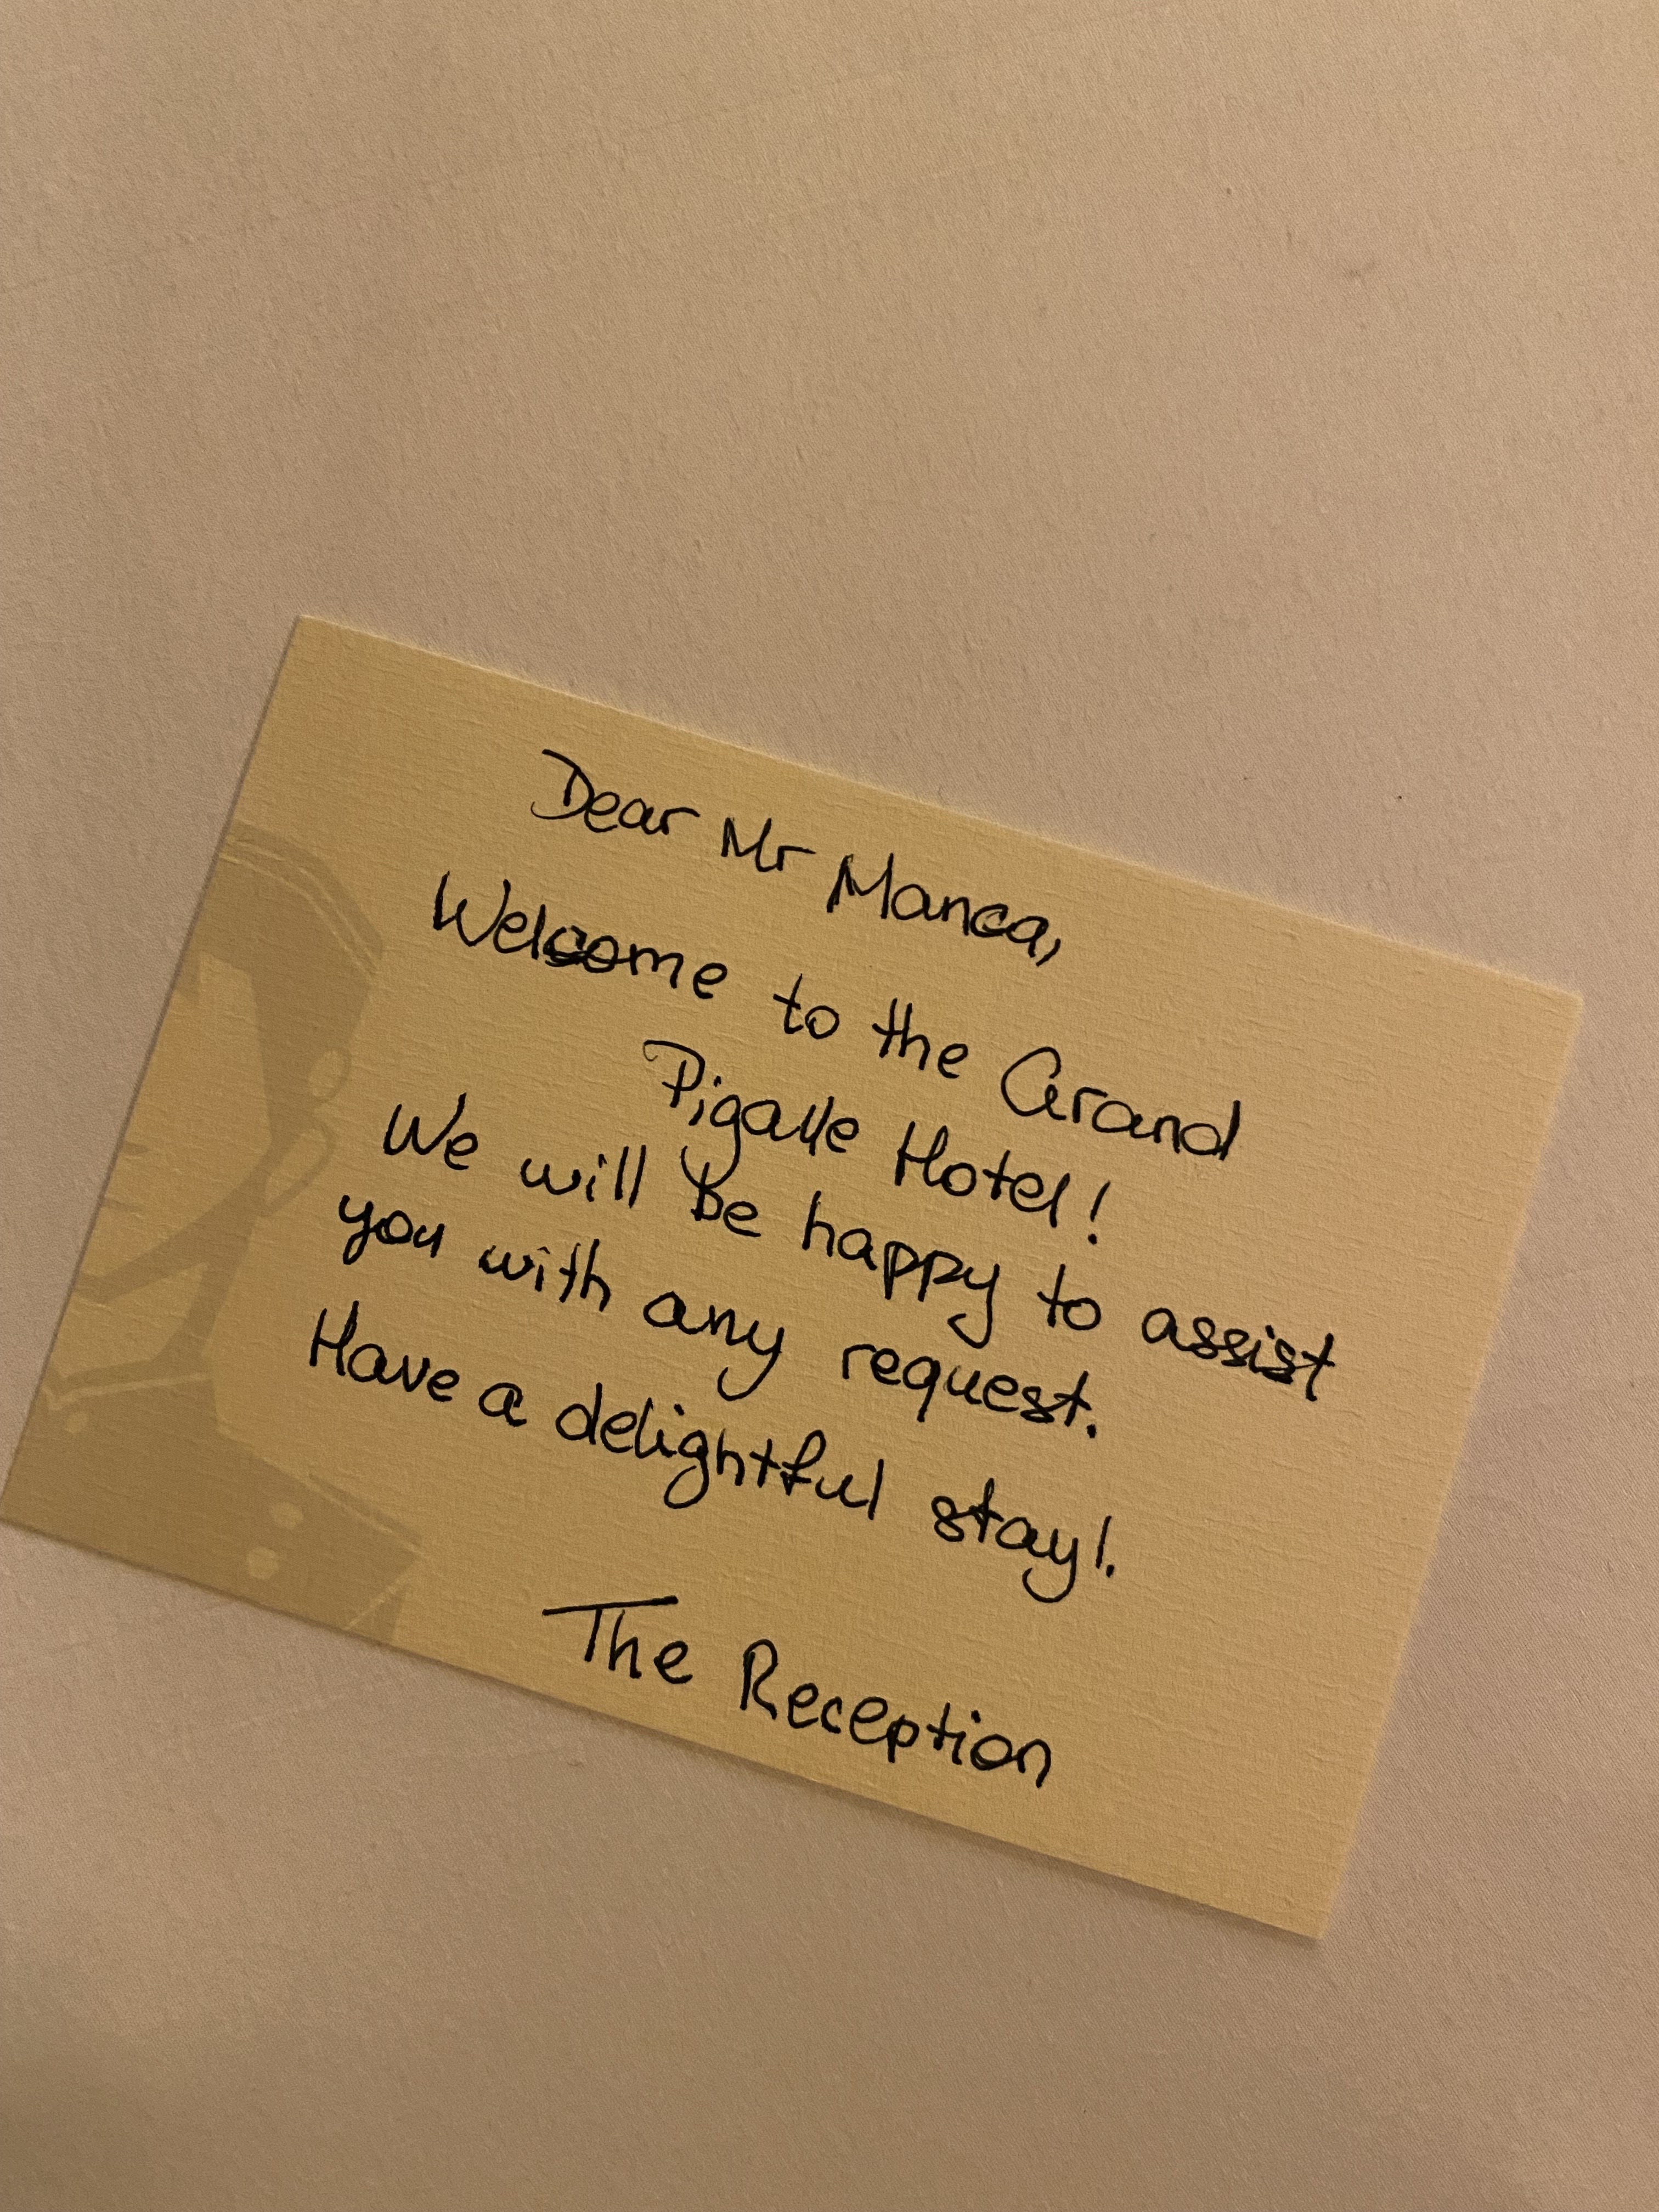 Dear Mr Manca,
Welcome to the Grand
Pigalle Hotel!
We will be happy to assist
you with any request.
Have a delightful stay!
The Reception